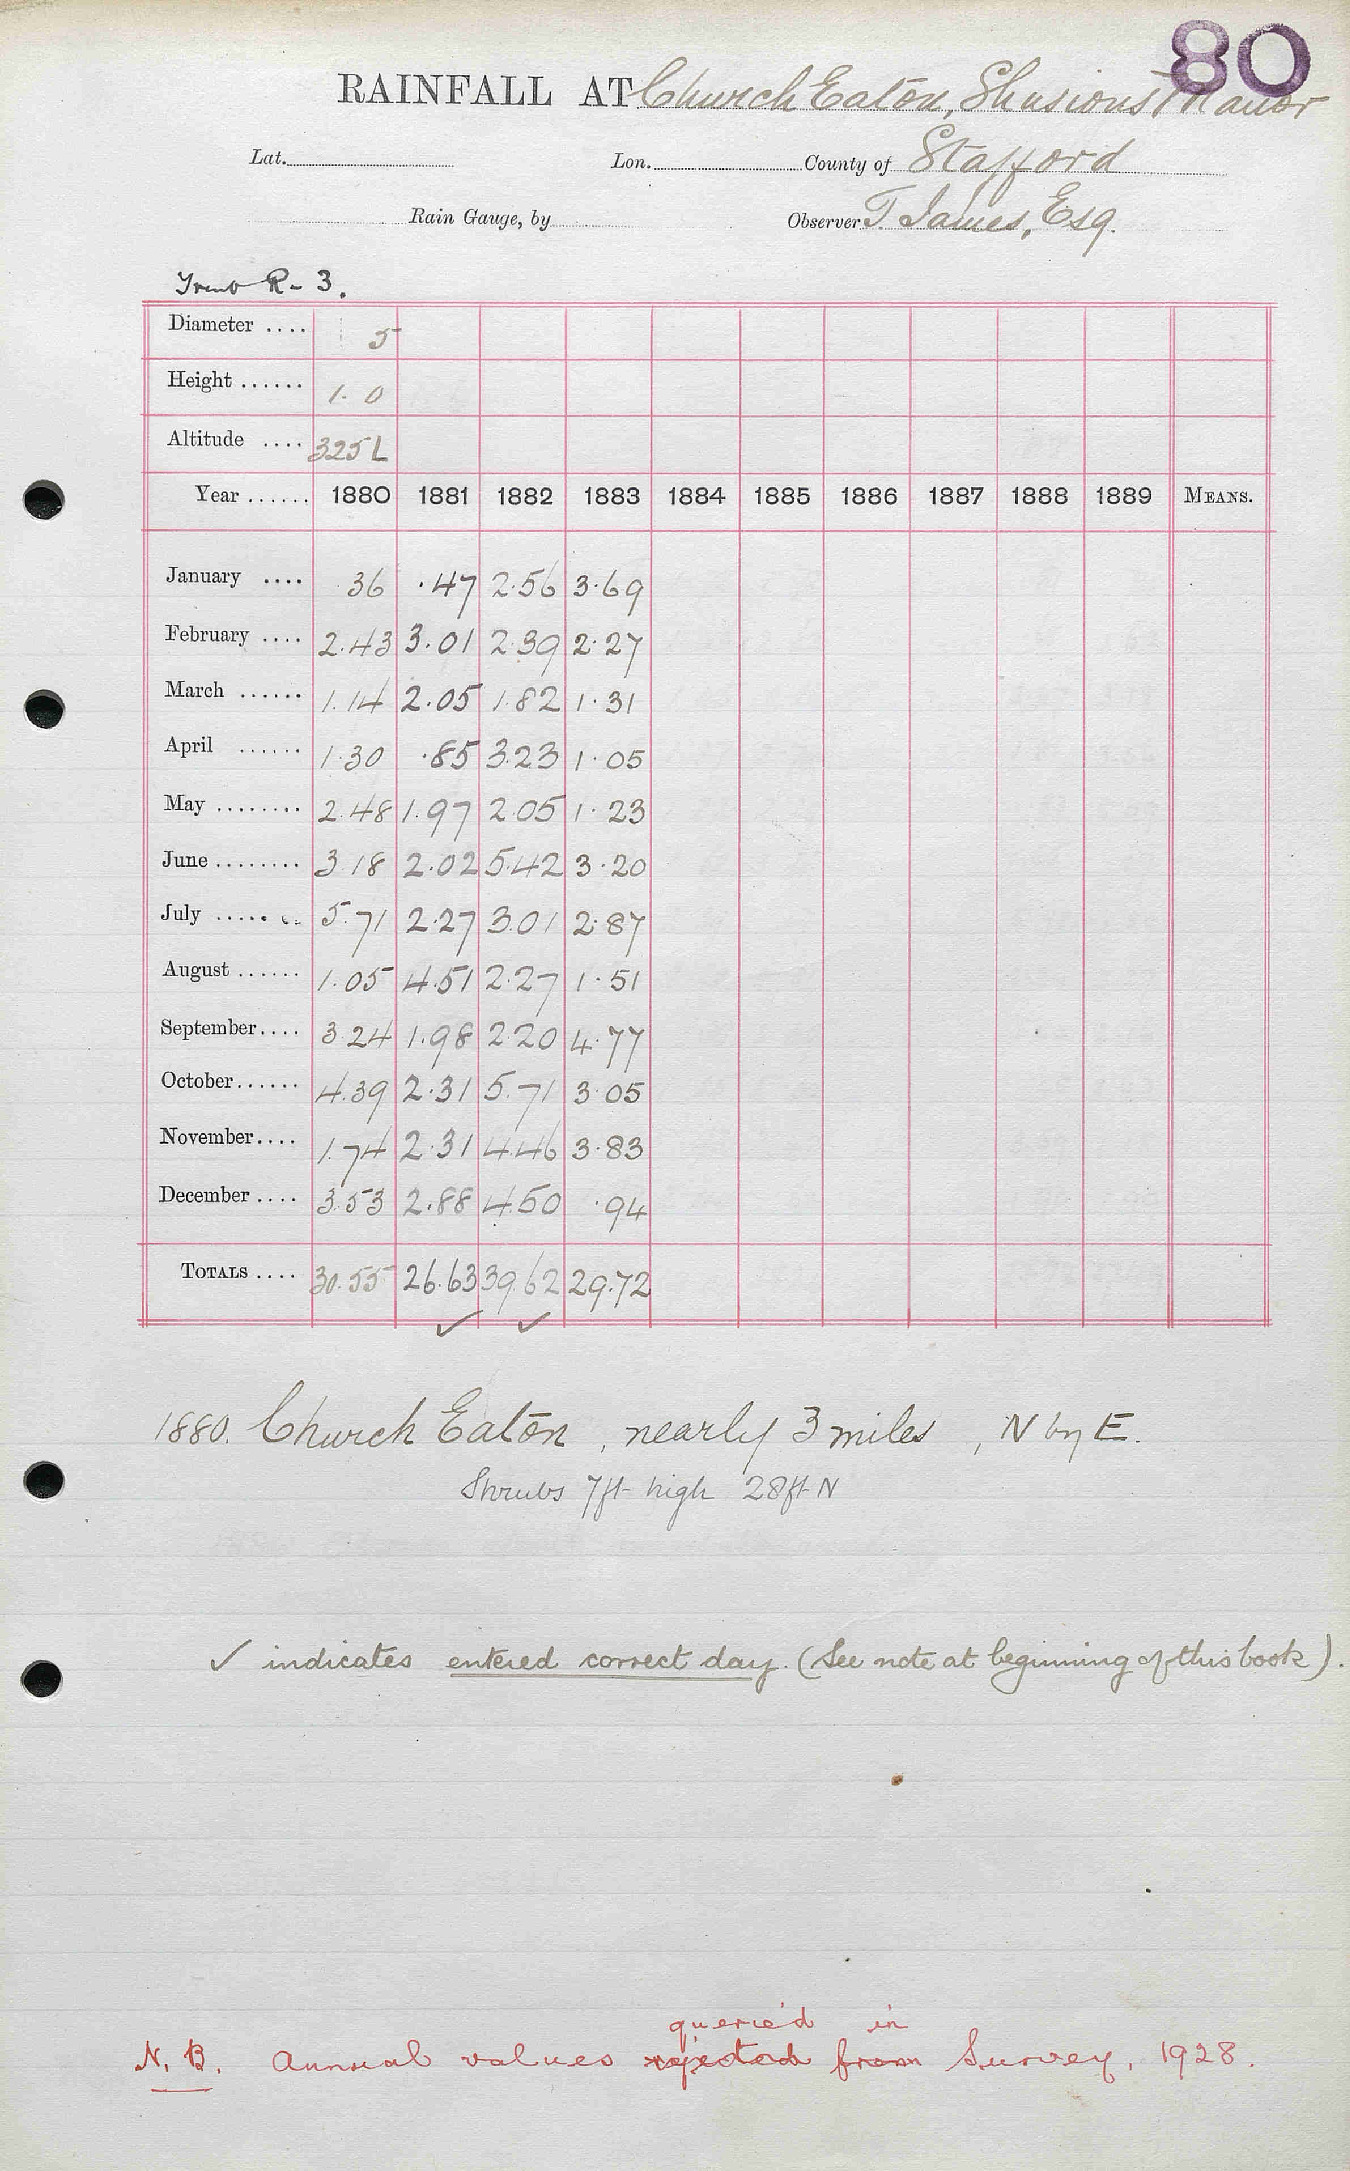 80
RAINFALL AT Church Eaton, Shusions Manor
Lat. Lon. County of Stafford
Rain Gauge, by Observer T. James, Esq.
Trent R- 3.
Diameter .... 5
Height ...... 1. 0
Altitude .... 325 L
Year ...... 1880 1881 1882 1883 1884 1885 1886 1887 1888 1889 MEANS.
January .... .36 .47 2.56 3.69
February .... 2.43 3.01 2.39 2.27
March ...... 1.14 2.05 1.82 1.31
April ...... 1.30 .85 3.23 1.05
May ........ 2.48 1.97 2.05 1.23
June ........ 3.18 2.02 5.42 3.20
July ...... 5.71 2.27 3.01 2.87
August ...... 1.05 4.51 2.27 1.51
September .... 3.24 1.98 2.20 4.77
October ...... 4.39 2.31 5.71 3.05
November .... 1.74 2.31 4.46 3.83
December .... 3.53 2.88 4.50 .94
TOTALS .... 30.55 26.63 39.62 29.72
✓ ✓
1880. Church Eaton, nearly 3 miles, N by E.
Shrubs 7ft high 28ft N
✓ indicates entered correct day. (See note at beginning of this book).
querie'd in
N. B. Annual values rejected from Survey, 1928.